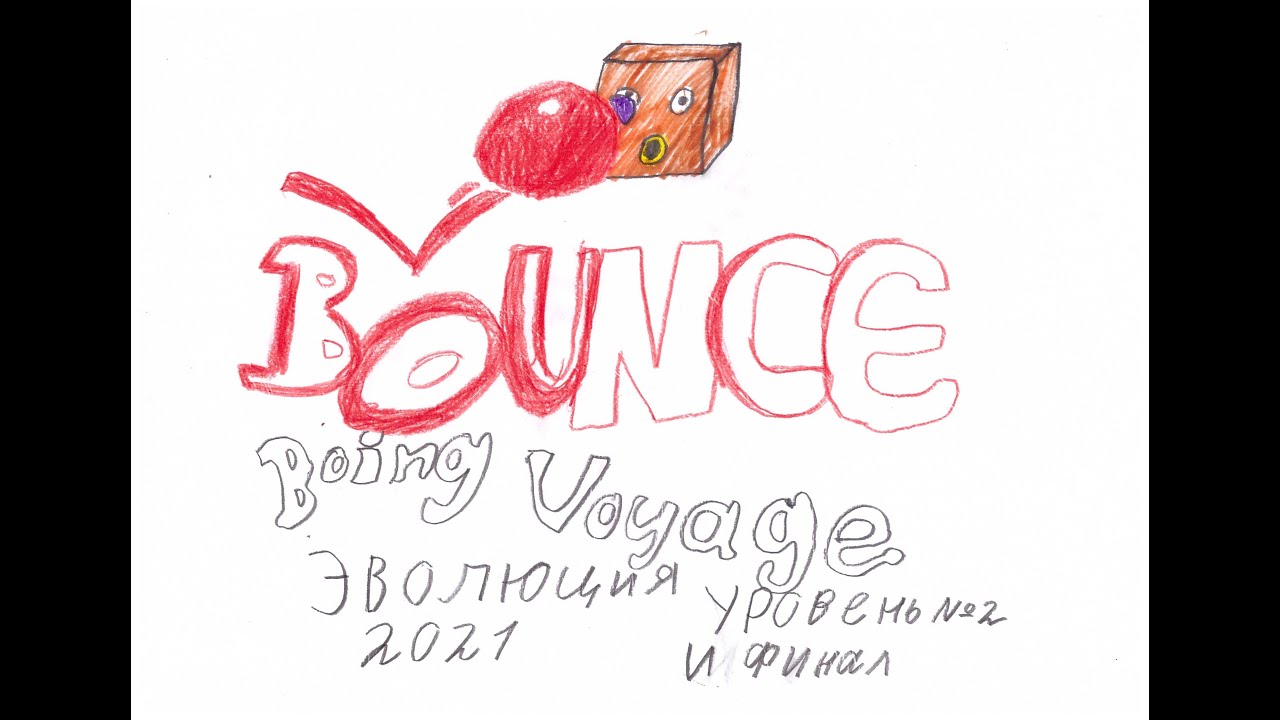 BOUNCE
Boing Voyage
ЭВОЛЮЦИЯ уровень №2
2021 и финал